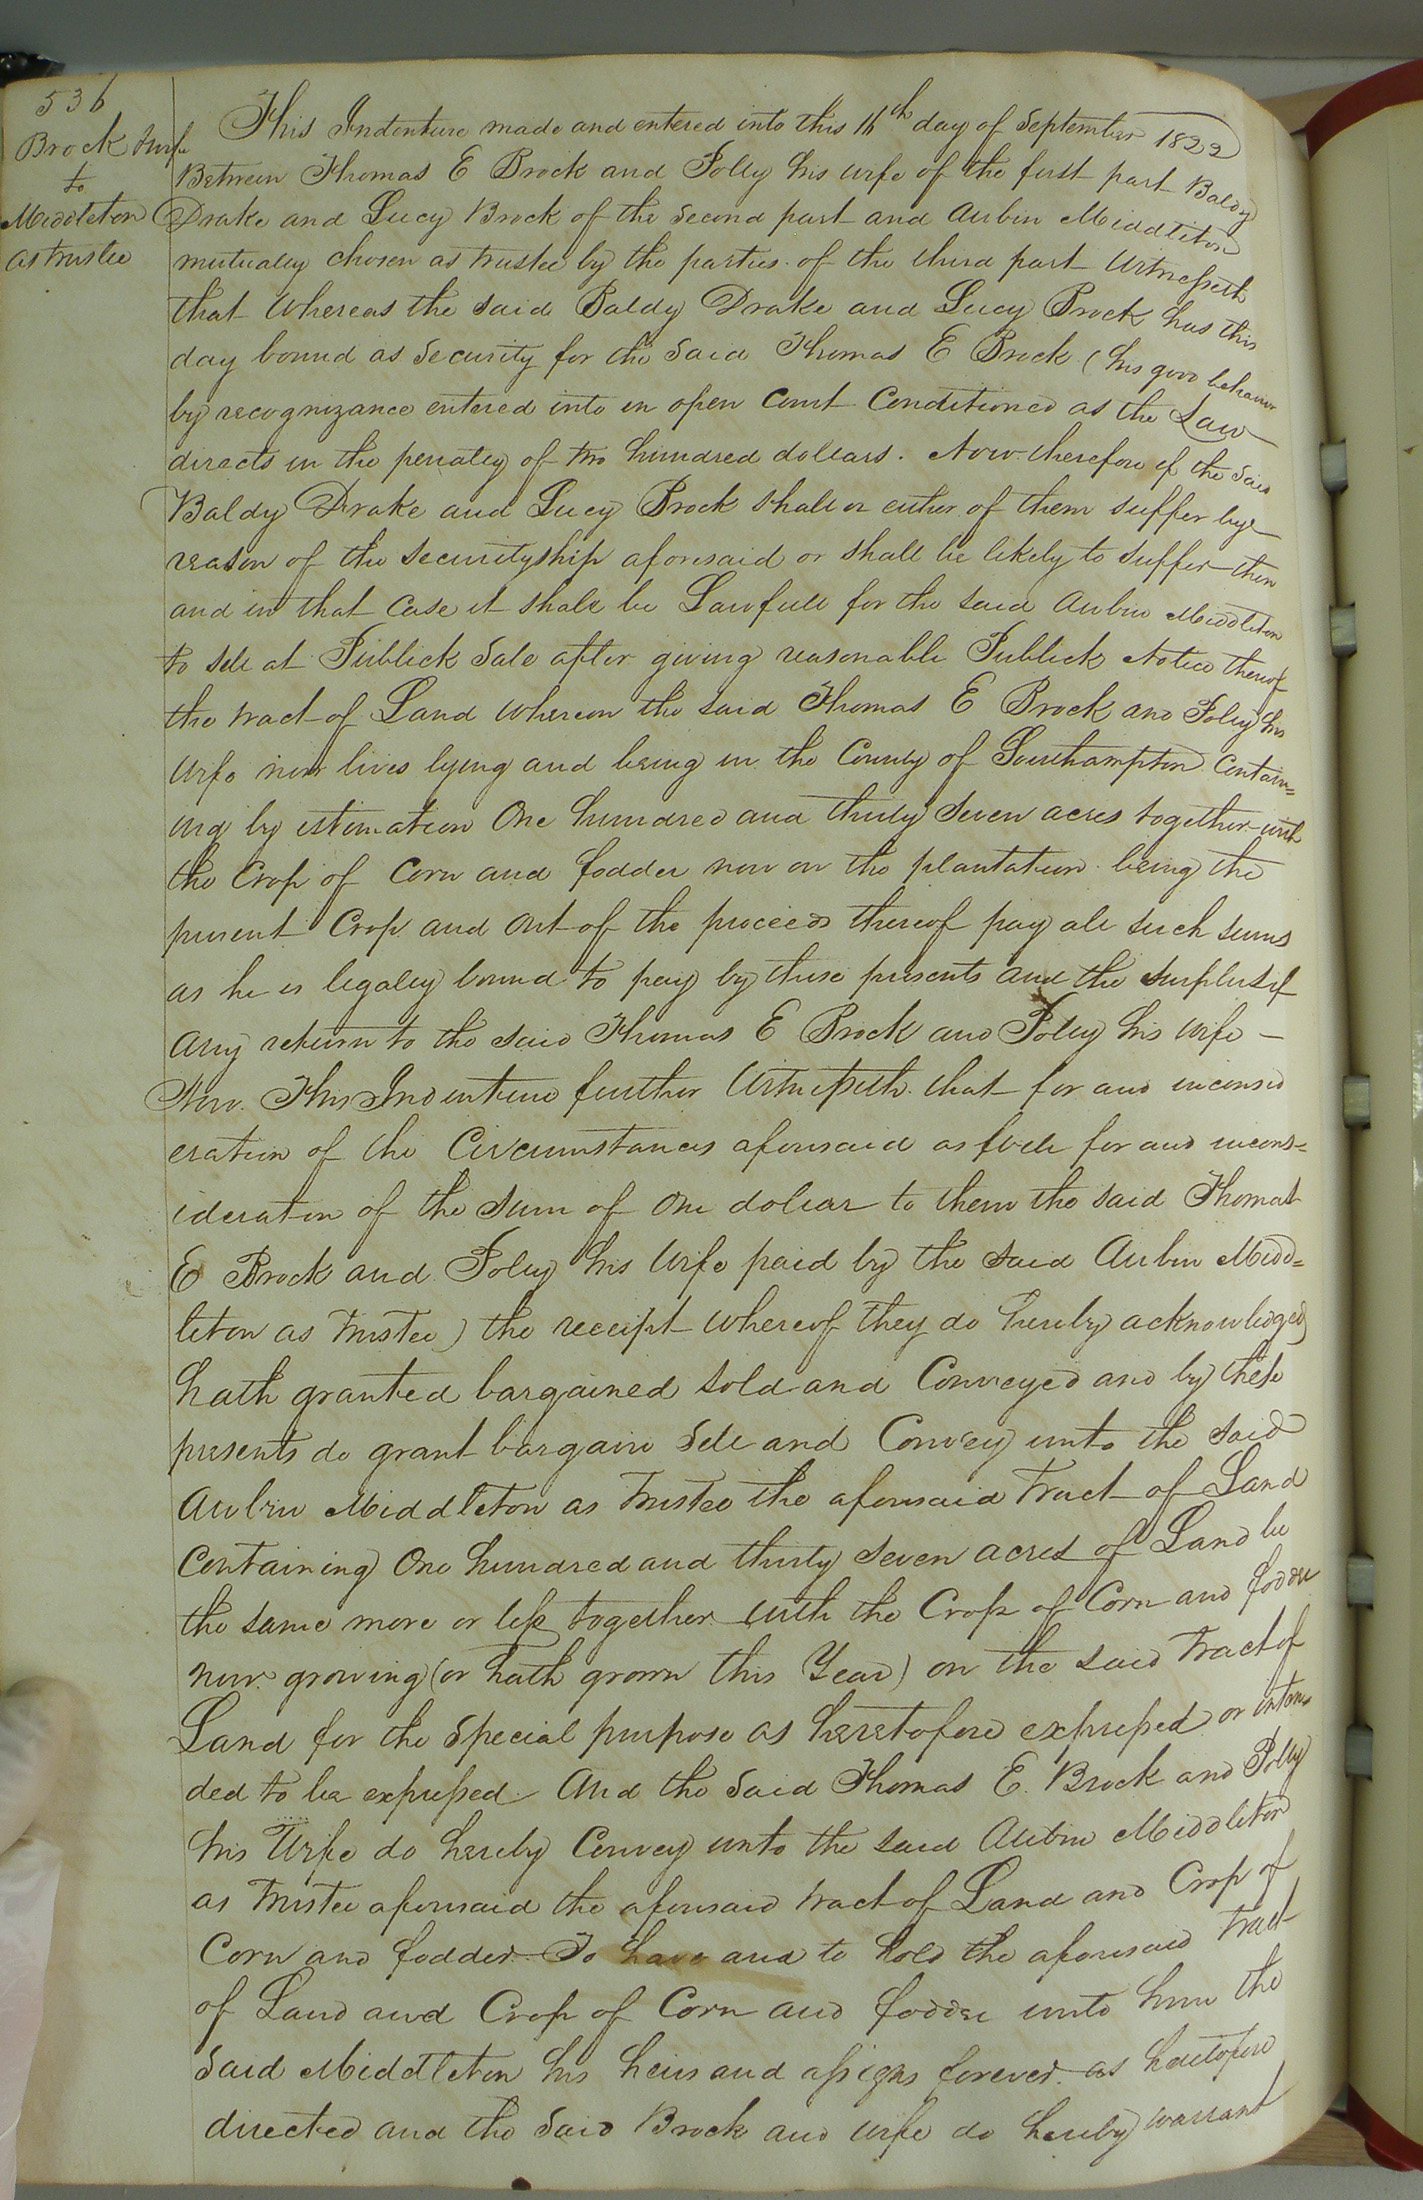 536
Brock & wife
to
Middleton
as trustee
This Indenture made and entered into this 16th day of September 1822
Between Thomas E Brock and Polly his wife of the first part Baldy
Drake and Lucy Brock of the Second part and Aubin Middleton
mutualy chosen as trustee by the parties of the third part Witnesseth
that Whereas the said Baldy Drake and Lucy Brock has this
day bound as Security for the Said Thomas E Brock (his good behavior
by recognizance entered into in open Court Conditioned as the Law
directs in the penalty of two hundred dollars. Now therefore if the Said
Baldy Drake and Lucy Brock shall or either of them suffer bye
reason of the securityship aforesaid or shall be likely to suffer then
and in that Case it shall be Lawfull for the said Aubin Middleton
to sell at Publick Sale after giving reasonable Publick Notice thereof
the tract of Land whereon the said Thomas E Brock and Polly his
Wife now lives lying and being in the County of Southampton Contain=
ing by estimation One hundred and thirty Seven acres together with
the Crop of Corn and fodder now on the plantation being the
present Crop and out of the proceeds thereof pay all such sums
as he is legaly bound to pay by these presents and the surplus if
any return to the said Thomas E Brock and Polly his wife –
Now This Indenture further Witnesseth that for and inconsid
eration of the Circumstances aforesaid as well for and incons=
ideration of the Sum of One dollar to them the said Thomas
E Brock and Polly his Wife paid by the said Aubin Midd=
leton as trustee) the receipt whereof they do hereby acknowledged
hath granted bargained sold and Conveyed and by these
presents do grant bargain Sell and Convey unto the said
Aubin Middleton as trustee the aforesaid Tract of Land
Containing One hundred and thirty Seven acres of Land be
the same more or less together with the Crop of Corn and fodder
now growing (or hath grown this Year) on the said Tract of
Land for the Special purpose as heretofore expressed or inten=
ded to be expressed. And the Said Thomas E. Brock and Polly
his Wife do hereby Convey unto the said Aubin Middleton
as Trustee aforesaid the aforesaid tract of Land and Crop of
Corn and fodder To have and to hold the aforesaid Tract
of Land and Crop of Corn and fodder unto him the
Said Middleton his heirs and assigns forever as heretofore
directed and the Said Brock and wife do hereby warrant